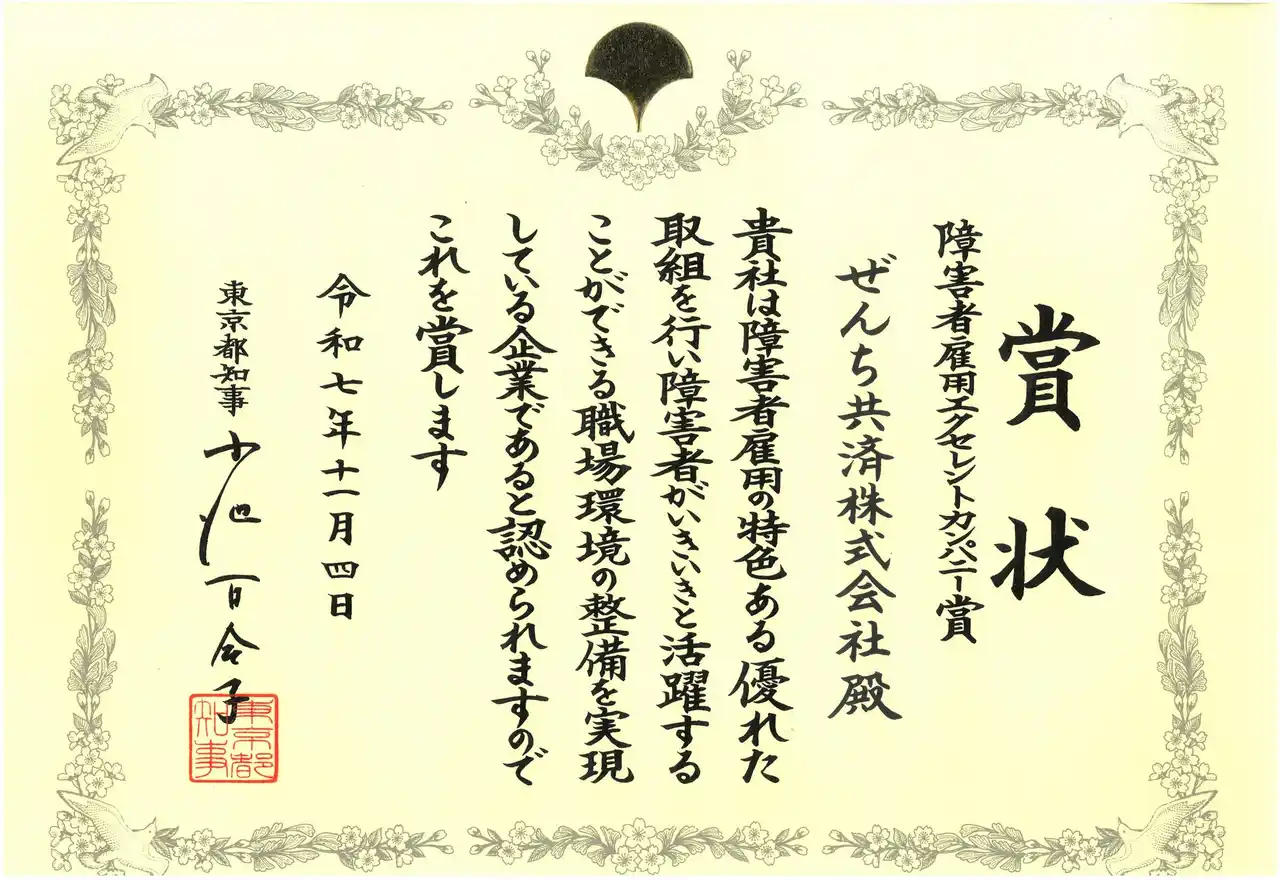 賞状
障害者雇用エクセレントカンパニー賞
ぜんち共済株式会社殿
貴社は障害者雇用の特色ある優れた
取組を行い障害者がいきいきと活躍する
ことができる職場環境の整備を実現
している企業であると認められますので
これを賞します
令和七年十一月四日
東京都知事 小池百合子
東京都
知事